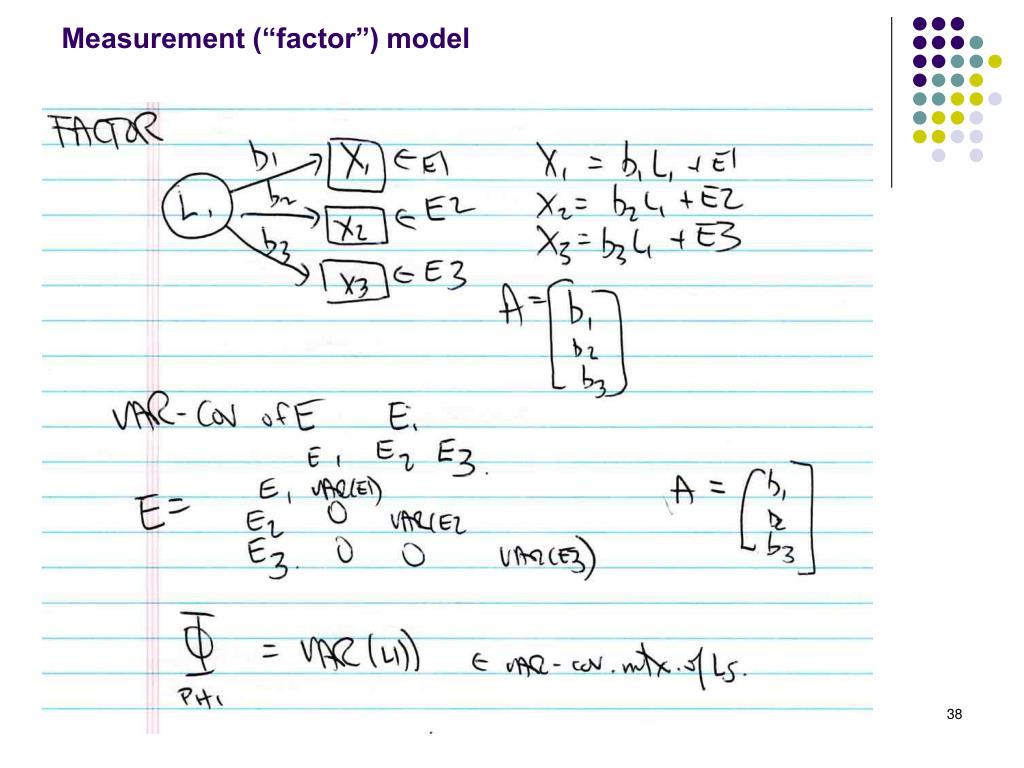 Measurement (“factor”) model
FACTOR
b1 X1 ← E1
L1 b2 X2 ← E2
b3 X3 ← E3
X1 = b1 L1 + E1
X2 = b2 L1 + E2
X3 = b3 L1 + E3
A = [b1
b2
b3]
VAR-COV of E E1
E1 E2 E3.
E = E1 VAR(E1)
E2 0 VAR(E2
E3. 0 0 VAR(E3)
A = [b1
b2
b3]
Φ = VAR(L1)) ← VAR-COV. mtx. of Ls.
PHI
38